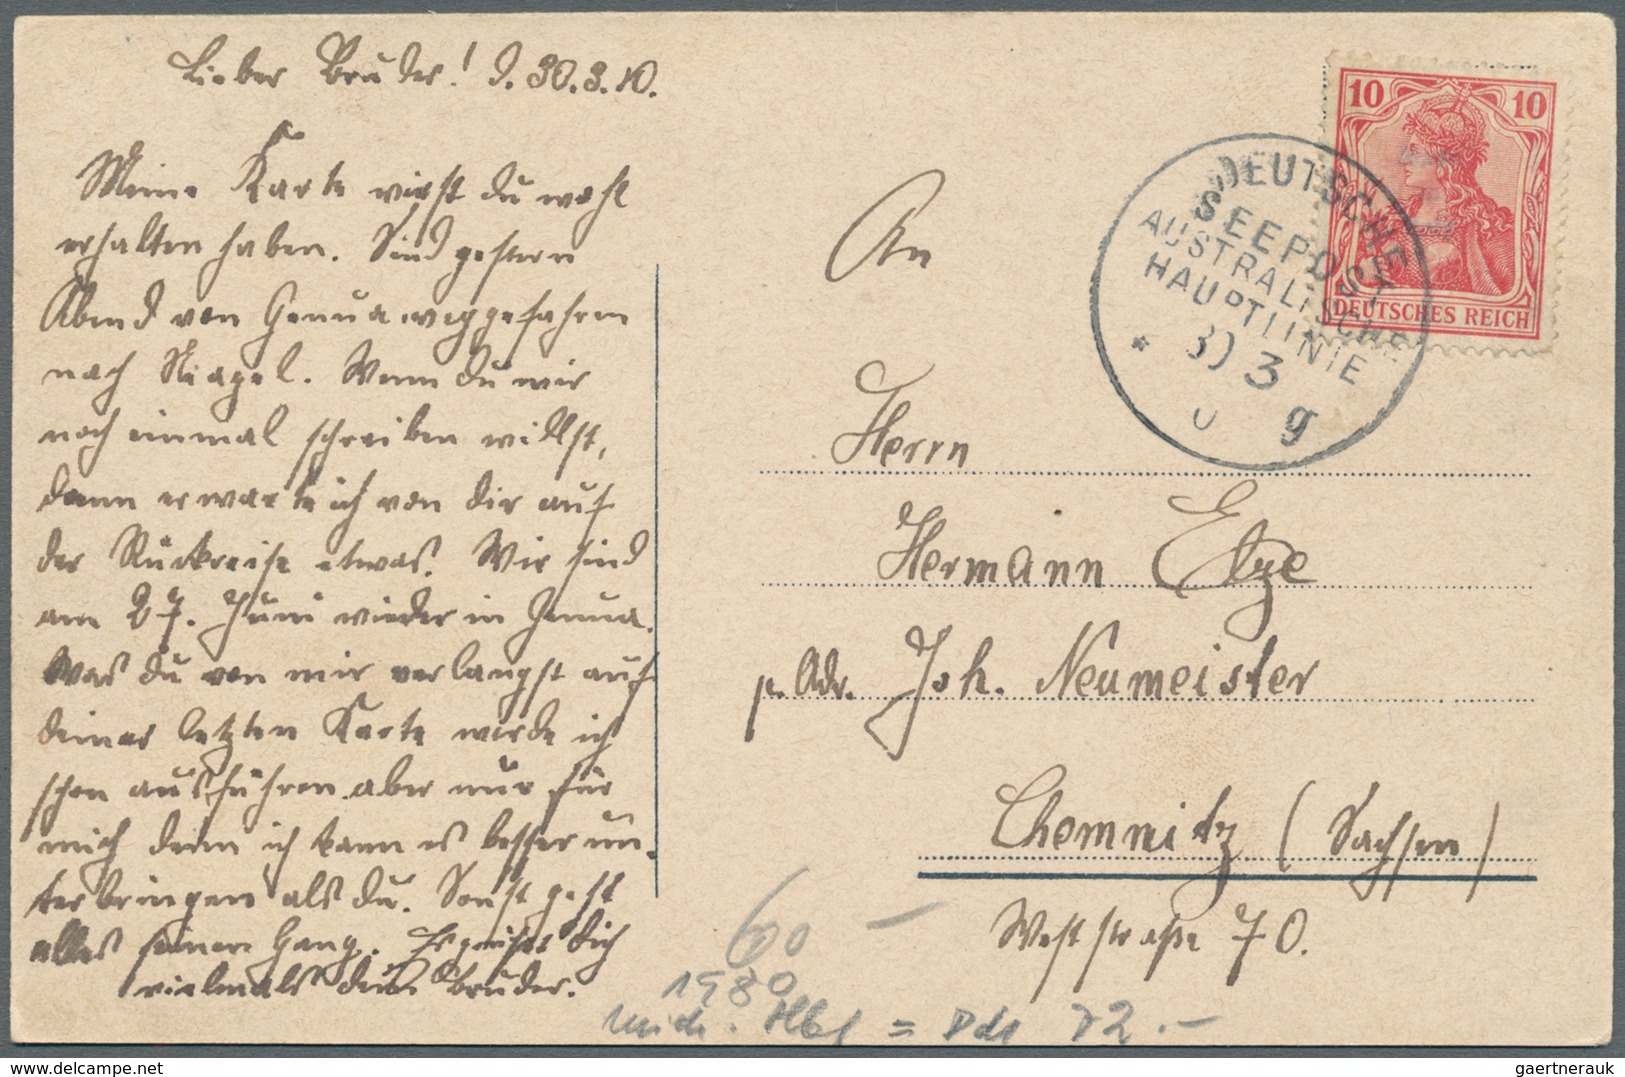 Lieber Bruder! d. 30.3.10.
Meine Karte wirst du wohl
erhalten haben. Sind gestern
Abend von Genua weggefahren
nach Neapel. Wenn du mir
noch einmal schreiben willst,
dann erwarte ich von dir auf
der Rückreise etwas. Wir sind
am 27. Juni wieder in Genua.
Was du von mir verlangst auf
deiner letzten Karte werde ich
schon ausführen aber nur für
mich denn ich kann es besser un-
terbringen als du. Sonst geht
alles seinen Gang. Es grüßt dich
vielmals dein Bruder.
10 10
DEUTSCHES REICH
DEUTSCHE
SEEPOST
AUSTRALISCHE
HAUPTLINIE
* 3
g
An
Herrn
Hermann Etze
p. Adr. Joh. Neumeister
Chemnitz (Sachsen)
Weststraße 70.
60 –
1980
72.-
gaertnerauk